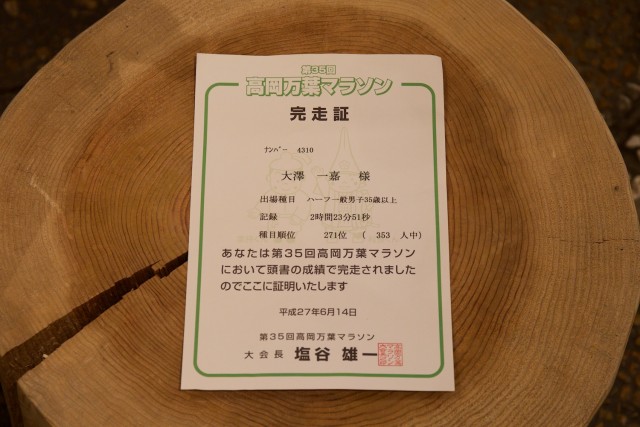 第35回
高岡万葉マラソン
完走証
ﾅﾝﾊﾞｰ 4310
大澤 一嘉 様
出場種目 ハーフ一般男子35歳以上
記録 2時間23分51秒
種目順位 271位 ( 353 人中)
あなたは第35回高岡万葉マラソン
において頭書の成績で完走されました
のでここに証明いたします
平成27年6月14日
第35回高岡万葉マラソン
大会長 塩谷 雄一